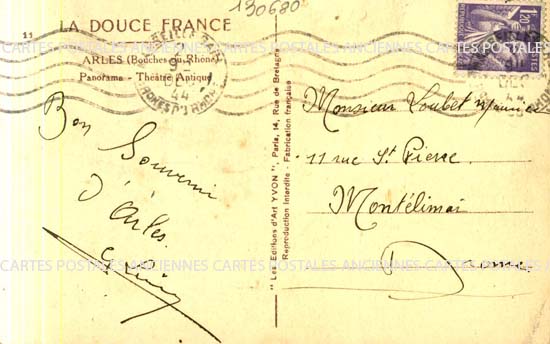 130680
11
LA DOUCE FRANCE
ARLES (Bouches du Rhône)
Panorama - Théâtre Antique
Bon
Souvenir
d'Arles
"Les Editions d'Art YVON", Paris, 14, Rue de Bretagne
Reproduction Interdite - Fabrication française
1F20
POSTES
44
Monsieur Loubet Maurice
11 rue St Pierre
Montélimar
Drome
CARTES POSTALES ANCIENNES CARTES POSTALES ANCIENNES
CARTES POSTALES ANCIENNES CARTES POSTALES ANCIENNES